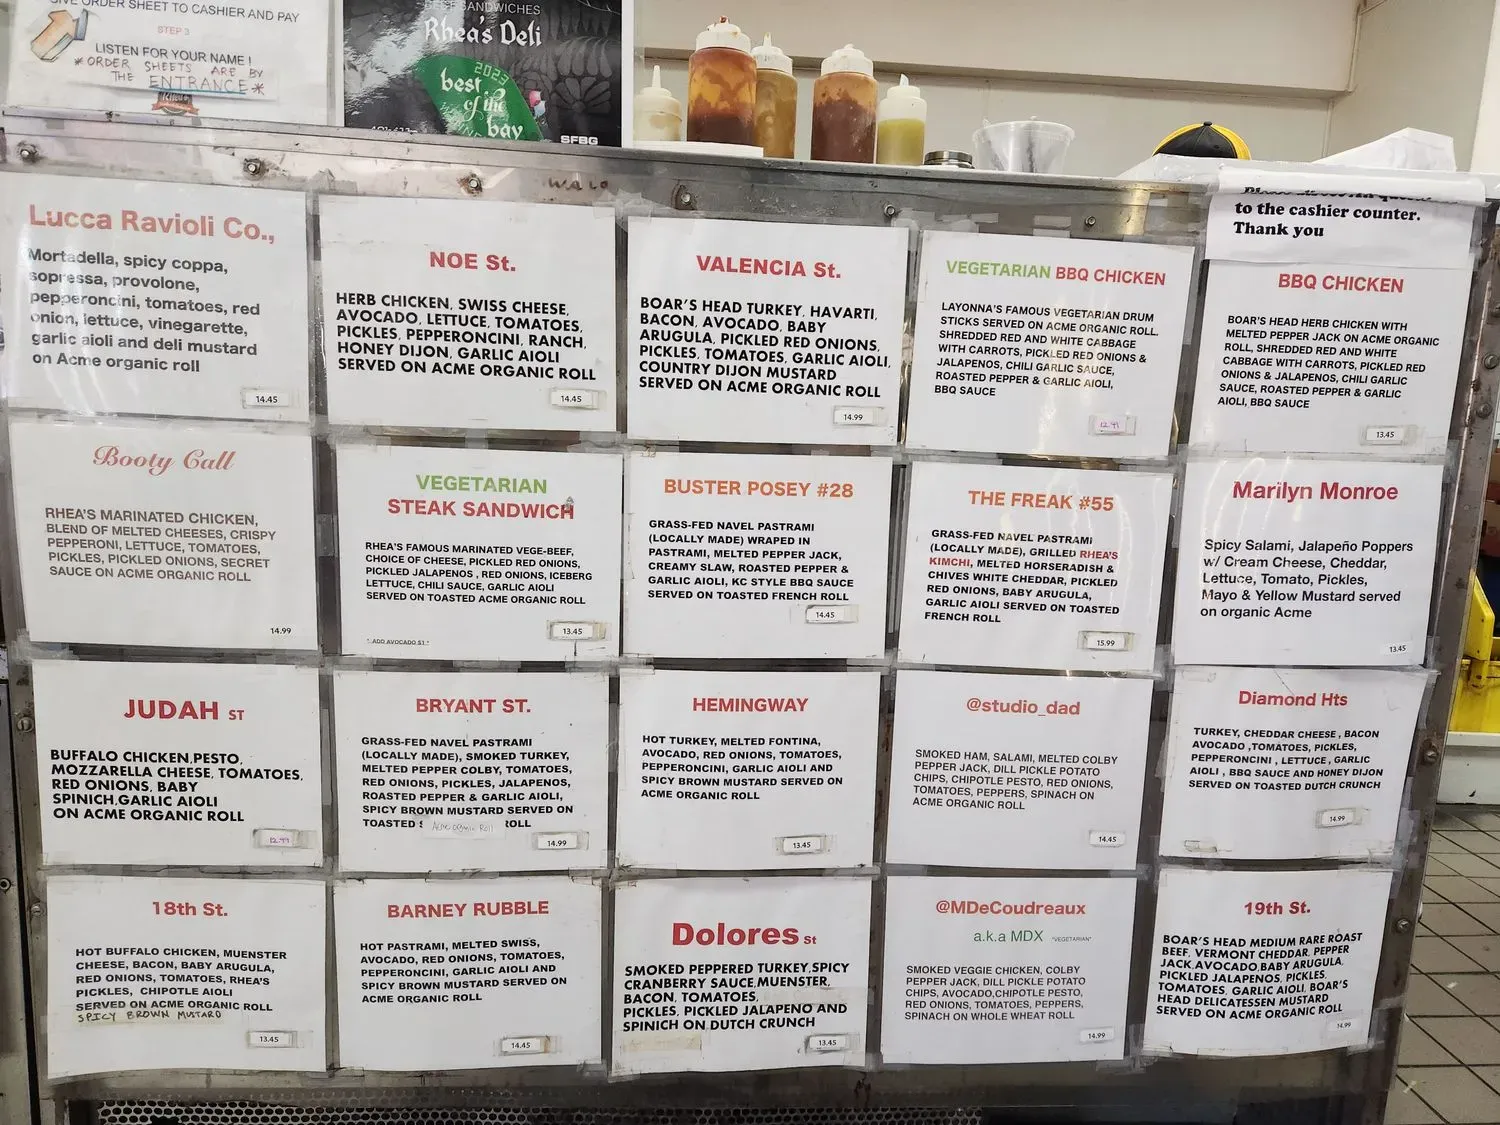 GIVE ORDER SHEET TO CASHIER AND PAY
STEP 3
LISTEN FOR YOUR NAME!
*ORDER SHEETS ARE BY
THE ENTRANCE*
BEST SANDWICHES
Rhea's Deli
2023
best
of the
bay
SFBG
to the cashier counter.
Thank you
Lucca Ravioli Co.,
Mortadella, spicy coppa,
sopressa, provolone,
pepperoncini, tomatoes, red
onion, lettuce, vinegarette,
garlic aioli and deli mustard
on Acme organic roll
14.45
NOE St.
HERB CHICKEN, SWISS CHEESE,
AVOCADO, LETTUCE, TOMATOES,
PICKLES, PEPPERONCINI, RANCH,
HONEY DIJON, GARLIC AIOLI
SERVED ON ACME ORGANIC ROLL
14.45
VALENCIA St.
BOAR'S HEAD TURKEY, HAVARTI,
BACON, AVOCADO, BABY
ARUGULA, PICKLED RED ONIONS,
PICKLES, TOMATOES, GARLIC AIOLI,
COUNTRY DIJON MUSTARD
SERVED ON ACME ORGANIC ROLL
14.99
VEGETARIAN BBQ CHICKEN
LAYONNA'S FAMOUS VEGETARIAN DRUM
STICKS SERVED ON ACME ORGANIC ROLL.
SHREDDED RED AND WHITE CABBAGE
WITH CARROTS, PICKLED RED ONIONS &
JALAPENOS, CHILI GARLIC SAUCE,
ROASTED PEPPER & GARLIC AIOLI,
BBQ SAUCE
12.91
BBQ CHICKEN
BOAR'S HEAD HERB CHICKEN WITH
MELTED PEPPER JACK ON ACME ORGANIC
ROLL, SHREDDED RED AND WHITE
CABBAGE WITH CARROTS, PICKLED RED
ONIONS & JALAPENOS, CHILI GARLIC
SAUCE, ROASTED PEPPER & GARLIC
AIOLI, BBQ SAUCE
13.45
Booty Call
RHEA'S MARINATED CHICKEN,
BLEND OF MELTED CHEESES, CRISPY
PEPPERONI, LETTUCE, TOMATOES,
PICKLES, PICKLED ONIONS, SECRET
SAUCE ON ACME ORGANIC ROLL
14.99
VEGETARIAN
STEAK SANDWICH
RHEA'S FAMOUS MARINATED VEGE-BEEF,
CHOICE OF CHEESE, PICKLED RED ONIONS,
PICKLED JALAPENOS , RED ONIONS, ICEBERG
LETTUCE, CHILI SAUCE, GARLIC AIOLI
SERVED ON TOASTED ACME ORGANIC ROLL
* ADD AVOCADO $1 *
13.45
BUSTER POSEY #28
GRASS-FED NAVEL PASTRAMI
(LOCALLY MADE) WRAPED IN
PASTRAMI, MELTED PEPPER JACK,
CREAMY SLAW, ROASTED PEPPER &
GARLIC AIOLI, KC STYLE BBQ SAUCE
SERVED ON TOASTED FRENCH ROLL
14.45
THE FREAK #55
GRASS-FED NAVEL PASTRAMI
(LOCALLY MADE), GRILLED RHEA'S
KIMCHI, MELTED HORSERADISH &
CHIVES WHITE CHEDDAR, PICKLED
RED ONIONS, BABY ARUGULA,
GARLIC AIOLI SERVED ON TOASTED
FRENCH ROLL
15.99
Marilyn Monroe
Spicy Salami, Jalapeño Poppers
w/ Cream Cheese, Cheddar,
Lettuce, Tomato, Pickles,
Mayo & Yellow Mustard served
on organic Acme
13.45
JUDAH ST
BUFFALO CHICKEN,PESTO,
MOZZARELLA CHEESE, TOMATOES,
RED ONIONS, BABY
SPINICH,GARLIC AIOLI
ON ACME ORGANIC ROLL
12.99
BRYANT ST.
GRASS-FED NAVEL PASTRAMI
(LOCALLY MADE), SMOKED TURKEY,
MELTED PEPPER COLBY, TOMATOES,
RED ONIONS, PICKLES, JALAPENOS,
ROASTED PEPPER & GARLIC AIOLI,
SPICY BROWN MUSTARD SERVED ON
TOASTED Acme Organic Roll ROLL
14.99
HEMINGWAY
HOT TURKEY, MELTED FONTINA,
AVOCADO, RED ONIONS, TOMATOES,
PEPPERONCINI, GARLIC AIOLI AND
SPICY BROWN MUSTARD SERVED ON
ACME ORGANIC ROLL
13.45
@studio_dad
SMOKED HAM, SALAMI, MELTED COLBY
PEPPER JACK, DILL PICKLE POTATO
CHIPS, CHIPOTLE PESTO, RED ONIONS,
TOMATOES, PEPPERS, SPINACH ON
ACME ORGANIC ROLL
14.45
Diamond Hts
TURKEY, CHEDDAR CHEESE , BACON
AVOCADO ,TOMATOES, PICKLES,
PEPPERONCINI , LETTUCE , GARLIC
AIOLI , BBQ SAUCE AND HONEY DIJON
SERVED ON TOASTED DUTCH CRUNCH
14.99
18th St.
HOT BUFFALO CHICKEN, MUENSTER
CHEESE, BACON, BABY ARUGULA,
RED ONIONS, TOMATOES, RHEA'S
PICKLES, CHIPOTLE AIOLI
SERVED ON ACME ORGANIC ROLL
SPICY BROWN MUSTARD
13.45
BARNEY RUBBLE
HOT PASTRAMI, MELTED SWISS,
AVOCADO, RED ONIONS, TOMATOES,
PEPPERONCINI, GARLIC AIOLI AND
SPICY BROWN MUSTARD SERVED ON
ACME ORGANIC ROLL
14.45
Dolores St
SMOKED PEPPERED TURKEY,SPICY
CRANBERRY SAUCE,MUENSTER,
BACON, TOMATOES,
PICKLES, PICKLED JALAPENO AND
SPINICH ON DUTCH CRUNCH
13.45
@MDeCoudreaux
a.k.a MDX "VEGETARIAN"
SMOKED VEGGIE CHICKEN, COLBY
PEPPER JACK, DILL PICKLE POTATO
CHIPS, AVOCADO,CHIPOTLE PESTO,
RED ONIONS, TOMATOES, PEPPERS,
SPINACH ON WHOLE WHEAT ROLL
14.99
19th St.
BOAR'S HEAD MEDIUM RARE ROAST
BEEF, VERMONT CHEDDAR, PEPPER
JACK,AVOCADO,BABY ARUGULA,
PICKLED JALAPENOS, PICKLES,
TOMATOES, GARLIC AIOLI, BOAR'S
HEAD DELICATESSEN MUSTARD
SERVED ON ACME ORGANIC ROLL
14.99